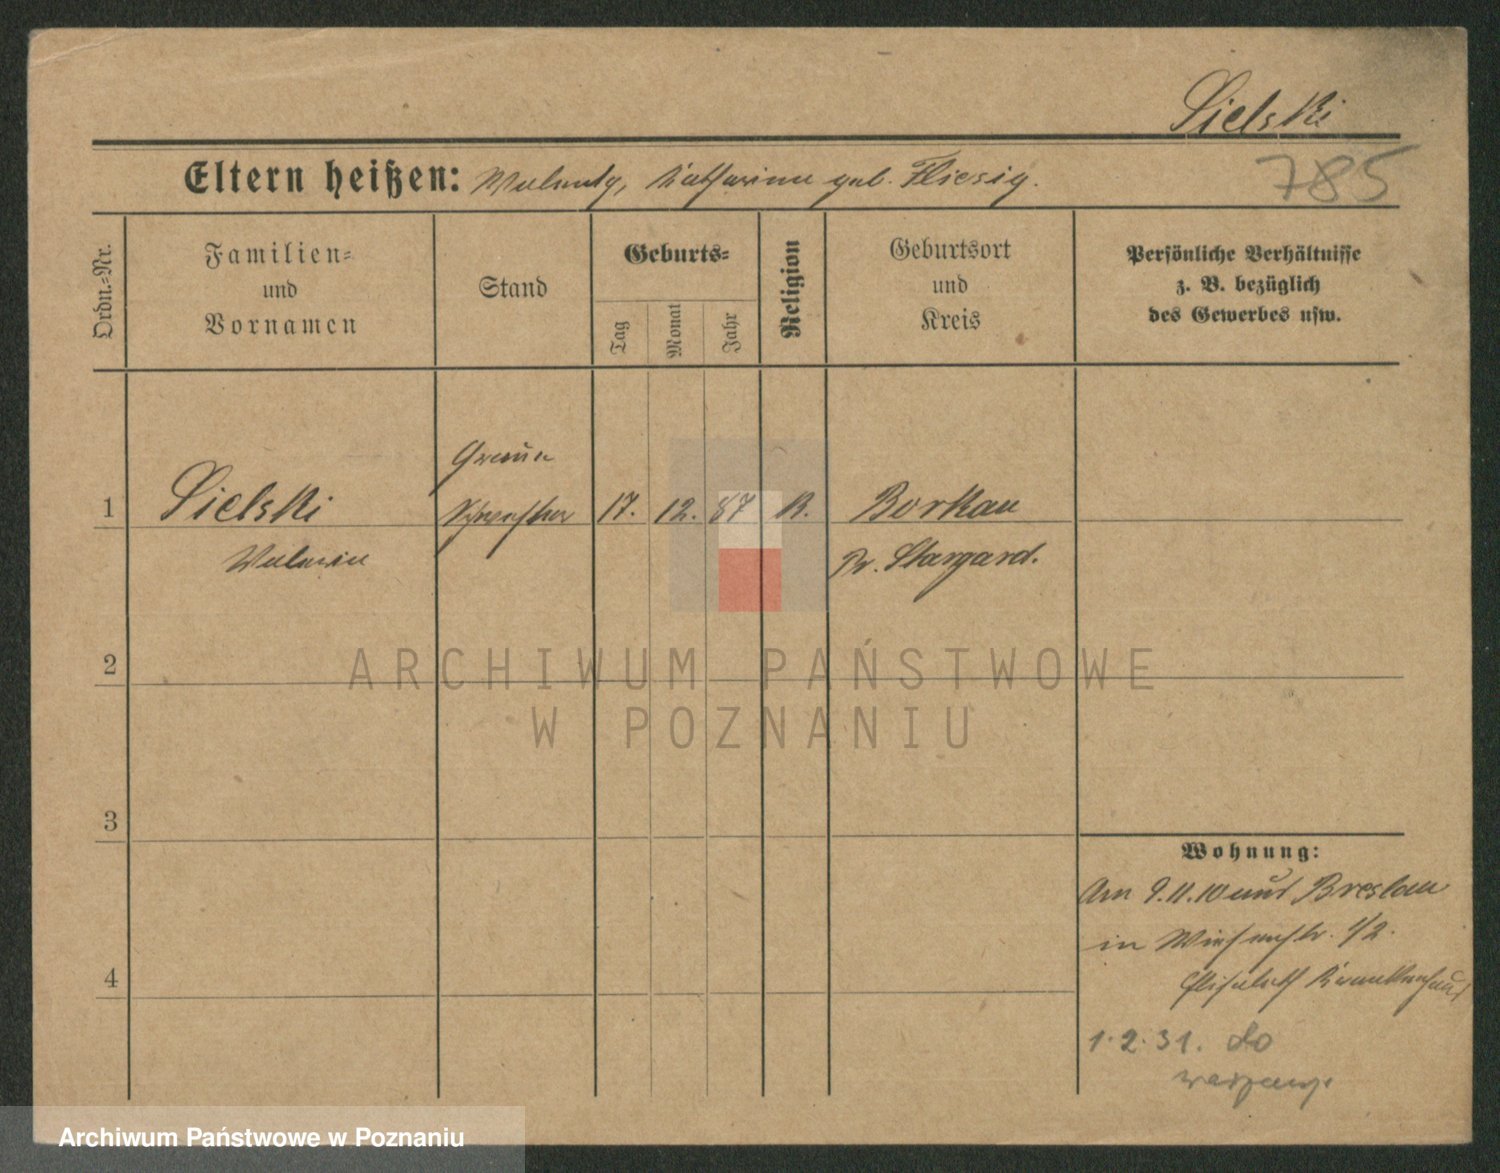 Sielski
785
Eltern heißen: Valenty, Katharina geb. Fliesig.
Ordn.=Nr.
Familien=
und
Vornamen
Stand
Geburts=
Tag
Monat
Jahr
Religion
Geburtsort
und
Kreis
Persönliche Verhältnisse
z. B. bezüglich
des Gewerbes usw.
1
Sielski
Graue
Schwester
17. 12. 87 K.
Borkau
Pr. Stargard.
2
3
4
Wohnung:
Am 9.11.10 aus Breslau
in Wiesenstr. 1/2.
Elisabeth Krankenhaus
1.2.31. do
ARCHIWUM PAŃSTWOWE
W POZNANIU
Archiwum Państwowe w Poznaniu